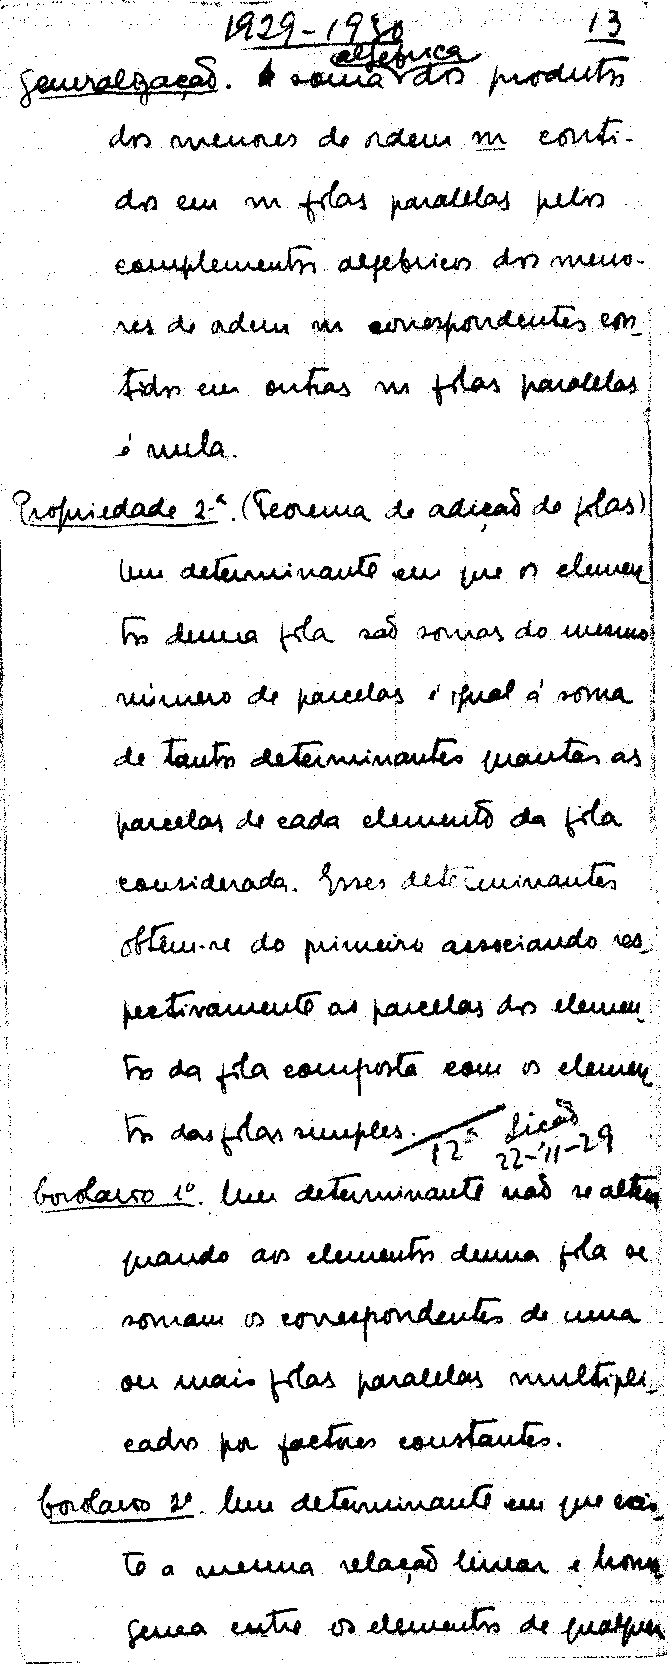 1929-1930 13
algébrica
Generalização. A soma dos produtos
dos menores de ordem m conti-
dos em m filas paralelas pelos
complementos algebricos dos meno-
res de ordem m correspondentes con-
tidos em outras m filas paralelas
é nula.
Propriedade 2ª. (Teorema de adição de filas)
Um determinante em que os elemen-
tos duma fila são somas do mesmo
número de parcelas é igual á soma
de tantos determinantes quantas as
parcelas de cada elemento da fila
considerada. Esses determinantes
obtem-se do primeiro associando res-
pectivamente as parcelas dos elemen-
tos da fila composta com os elemen-
tos das filas simples. 12ª Lição
22-11-29
Corolario 1º. Um determinante não se altera
quando aos elementos duma fila se
somam os correspondentes de uma
ou mais filas paralelas multipli-
cados por factores constantes.
Corolario 2º. Um determinante em que exis-
te a mesma relação linear e homo
genea entre os elementos de qualquer